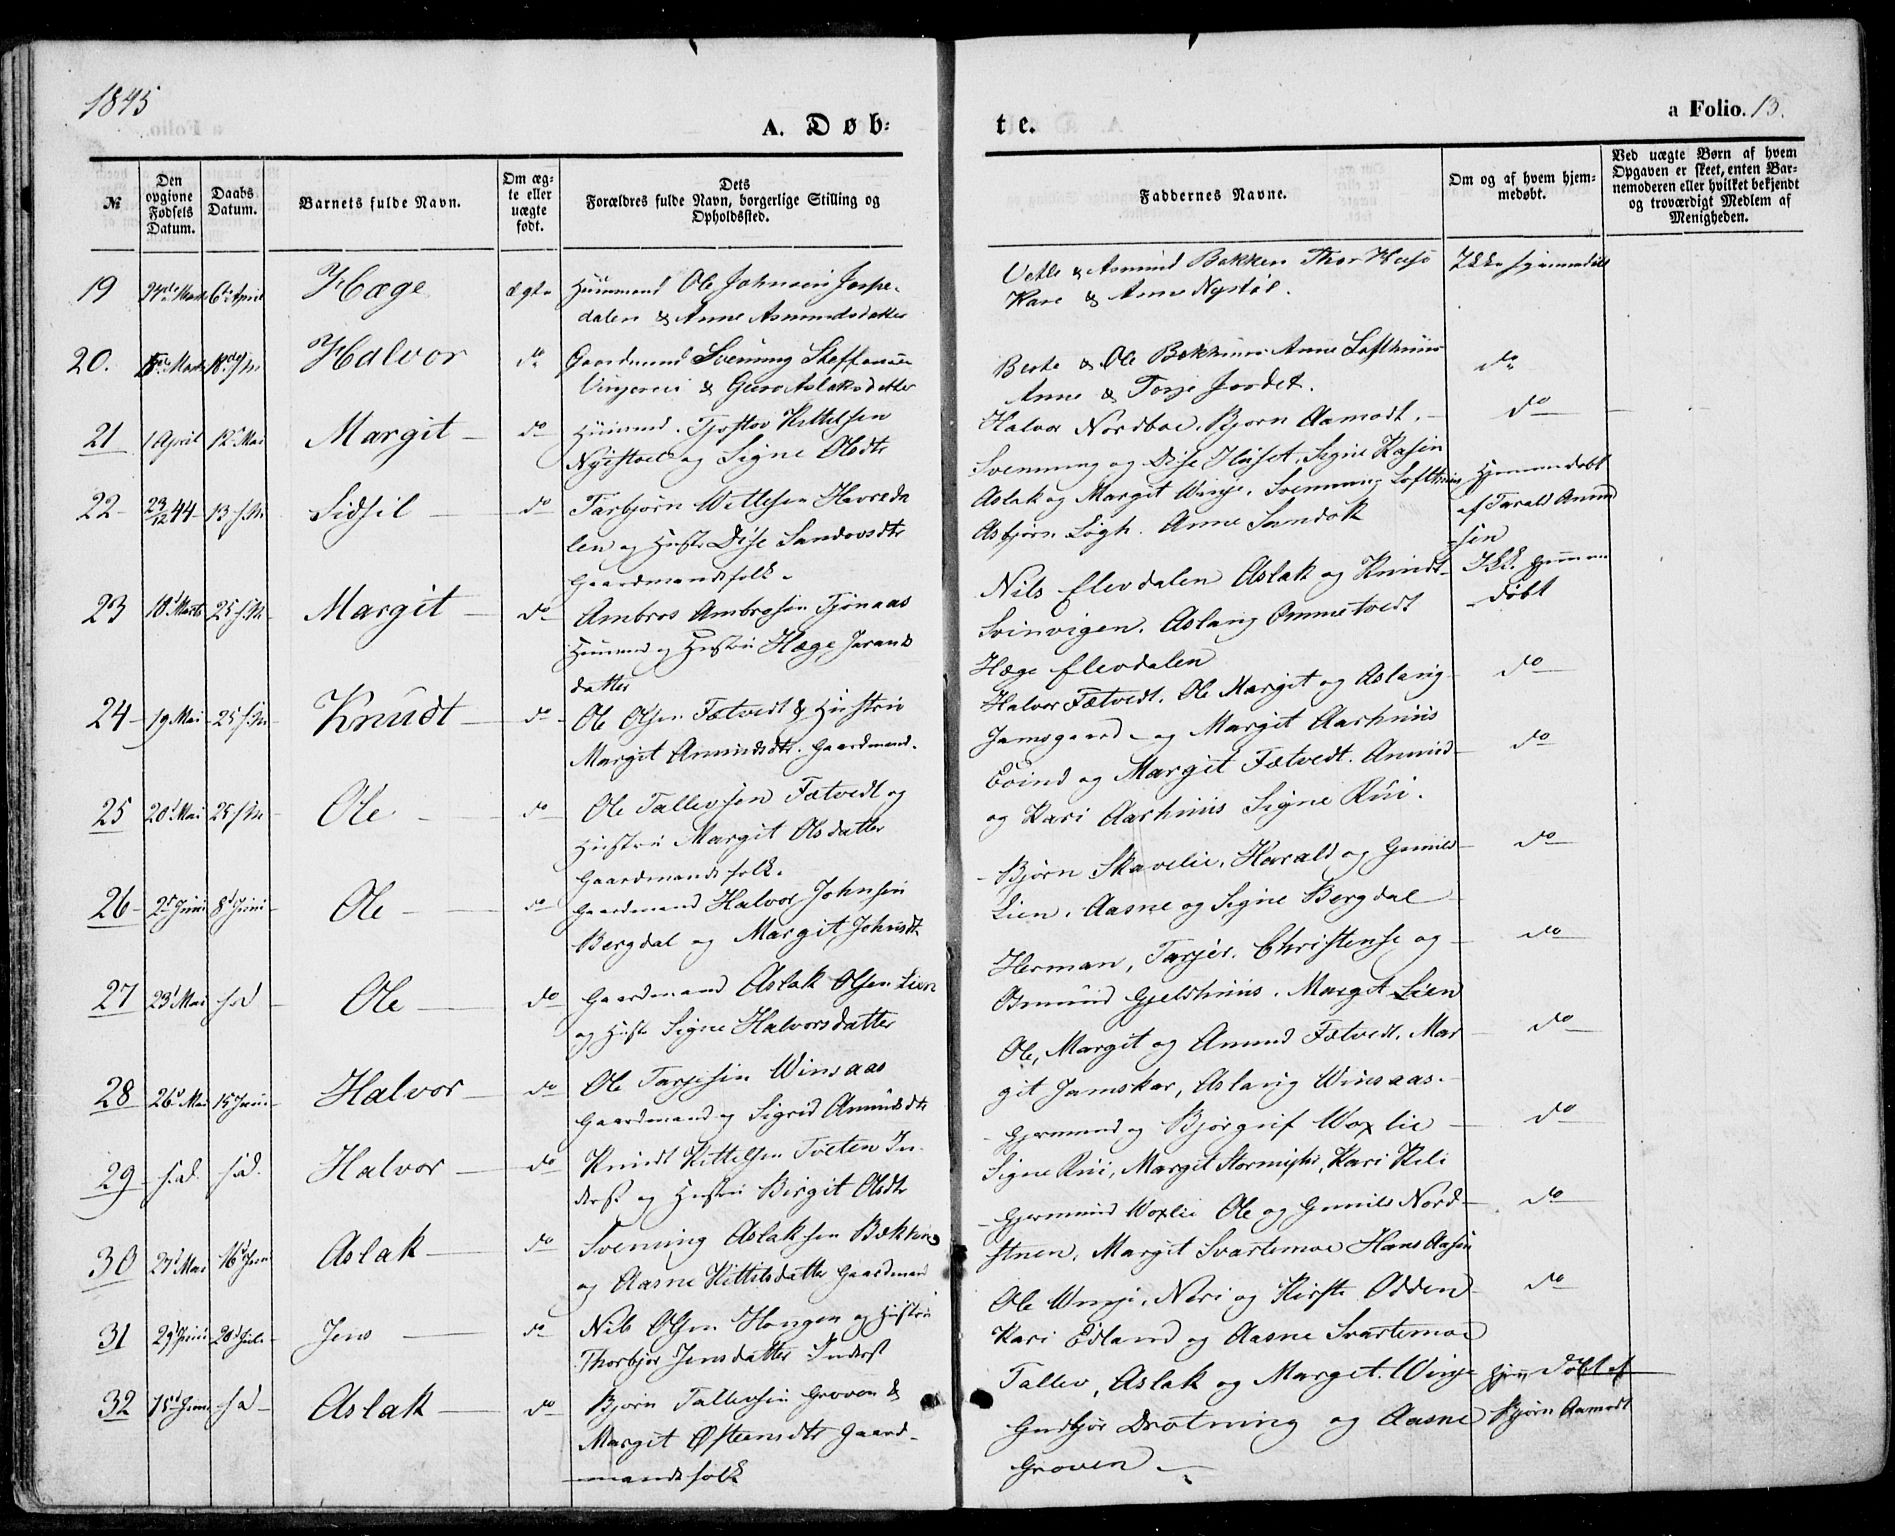 1845
A. Døb=
te.
a Folio. 13.
№
Den opgivne Fødsels Datum.
Daabs Datum.
Barnets fulde Navn.
Om ægte eller uægte født.
Dets Forældres fulde Navn, borgerlige Stilling og Opholdssted.
Faddernes Navne.
Om og af hvem hjemmedøbt.
Ved uægte Børn af hvem Opgaven er skeet, enten Barnemoderen eller hvilket bekjendt og troværdigt Medlem af Menigheden.
19 6te April Hæge ægte Huusmand Ole Johnsen Jaspe-
dalen & Anne Asmundsdatter
Vetle & Asmund Bakken Thor
Kare & Anne Nystøl.
20. Halvor do Gaardmand Svenung Steffensen
& Guro Aslaksdatter
Berte & Ole Bekhuus Anne Lofthuus
Anne & Torje Jordet.
do
21 1 April 12 Mai Margit do Huusmd. Tjostov Kittelsen
Nyestoel og Signe Olsdtr
Halvor Nordboe. Bjorn Aamodt.
Svenning og Dise Signe Kasin
do
22 23/12 44 13 s.M Sidsil do Tarbjørn Wetlesen Havreda
len og Hustr Dise Sandovsdtr
Gaardmandsfolk.
Aslak og Margit Winje. Svenning Lofthuus
Asbjørn Løgh. Anne Sandok
Hjemmedøbt
af Tarald Amund
sen
23 10 Marts 25 s.M Margit do Ambros Ambrosen Tjønaas
Huusmd og Hustru Hæge Jarands
datter
Nils Elevdalen Aslak og Knudt
Svinvigen. Aslaug Ommetvedt
Hæge Elevdalen
Ikk. hjemme
døbt
24 19 Mai 25 s.M Knudt do Ole Olsen Fætvedt & Hustru
Margit Amundsdtr. Gaardmand.
Halvor Fætvedt. Ole Margit og Aslaug
Jamsgaard og Margit Aarhuus
do
25 20 Mai 25 s.M Ole do Ole Tallevsen Fætvedt og
Hustru Margit Olsdatter
Gaardmandsfolk.
Eivind og Margit Fætvedt. Amund
og Kari Aarhuus Signe Rui.
do
26 2 Juni 8 Juni Ole do Gaardmand Halvor Johnsen
Bergdal og Margit Johnsdt
Bjørn Skavelie. Harald og Gunild
Lien. Aasne og Signe Bergdal
do
27 23 Mai s.d Ole do Gaardmand Aslak Olsen Lien
og Hustr Signe Halvorsdatter
Herman, Tarjer. Christense og
Asmund Gjelshuus. Margit Lien
do
28 26 Mai 15 Juni Halvor do Ole Tarjesen Winsaas
Gaardmand og Sigrid Amundsdtr
Ole, Margit og Amund Fætvedt. Mar
git Jamskar, Aslaug Winsaas.
do
29 s.d. s.d. Halvor do Knudt Kittelsen Tveten In-
derst og Hustru Birgit Olsdtr
Gjermund og Bjørgulf Woxlie
Signe Rui, Margit Kari
do
30 27 Mai 16 Juni Aslak do Svening Aslaksen Bækhus
og Aasne Kittilsdatter Gaardmand
Gjermund Woxlie Ole og Gunild Nord-
stuen, Margit Svartemoe Hans Aasen
do
31 29 Juni 20 Juli Jens do Nils Olsen Haugen og Hustru
Thorbjør Jensdatter Inderst
Ole Winje. Neri og Kirste Odden
Kari Edland og Aasne Svartemoe
do
32 15 Juni s.d Aslak do Bjørn Tallevsen Groven &
Margit Østensdtr Gaard-
mandsfolk
Tallev, Aslak og Margit. Winje
Gudbjør Drotning og Aasne
Groven
Hjm døbt af
Bjørn Aamodt